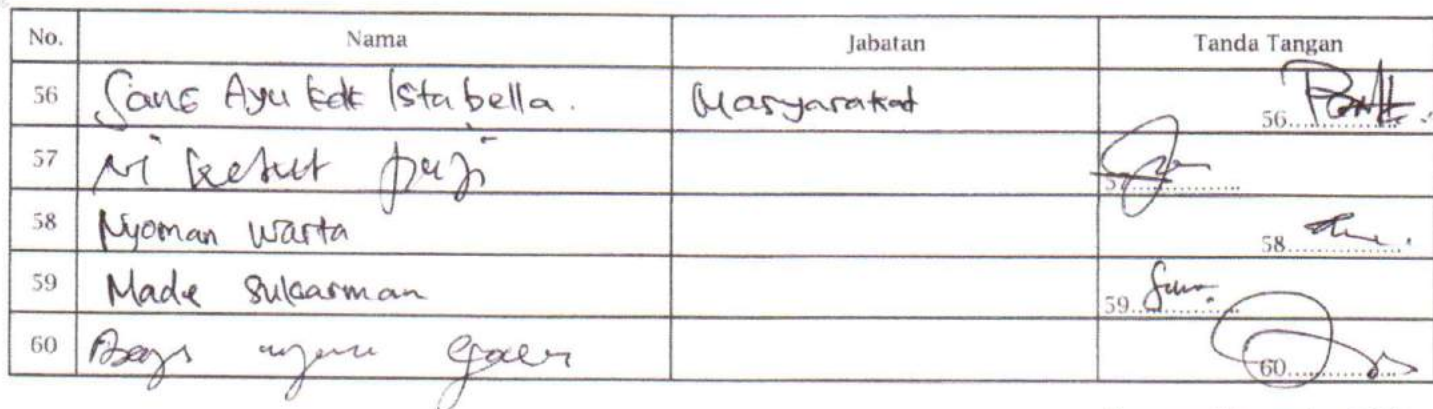 No. Nama Jabatan Tanda Tangan
56 Sang Ayu Kdk Istabella. Masyarakat 56..............
57 Ni Ketut puji 57..............
58 Nyoman Warta 58..............
59 Made Sukarman 59..............
60 60..............